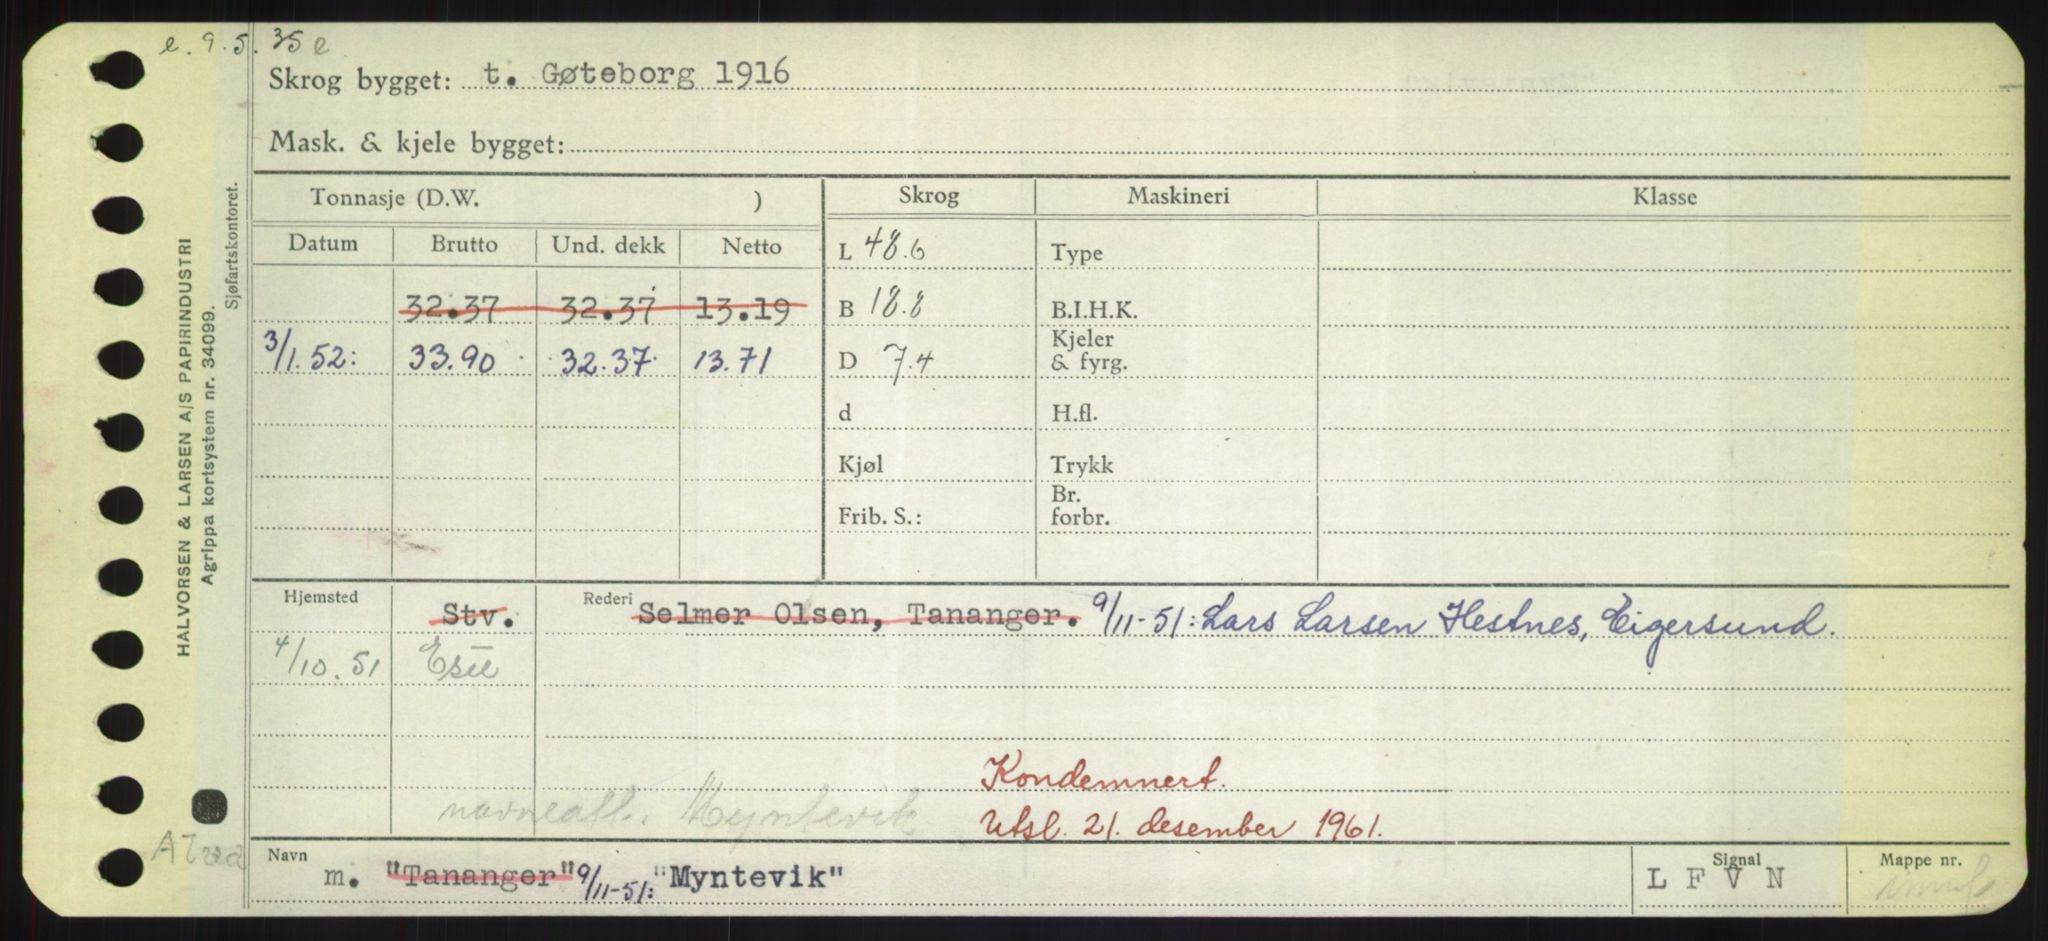 e. 9.5.35 e
Skrog bygget: t. Gøteborg 1916
Mask. & kjele bygget:
HALVORSEN & LARSEN A/S PAPIRINDUSTRI
Agrippa kortsystem nr. 34099.
Sjøfartskontoret.
Tonnasje (D.W. ) Skrog Maskineri Klasse
Datum Brutto Und. dekk Netto L 48.6 Type
32.37 32.37 13.19 B 18.8 B.I.H.K.
3/1.52: 33.90 32.37 13.71 D 7.4 Kjeler & fyrg.
d H.fl.
Kjøl Trykk
Frib. S.: Br. forbr.
Hjemsted Stv. Rederi Selmer Olsen, Tananger. 9/11-51: Lars Larsen Hestnes, Eigersund.
4/10.51
Kondemnert.
navneatt. Myntevik Utsl. 21. desember 1961.
Navn m. "Tananger" 9/11-51: "Myntevik" Signal L F V N Mappe nr.